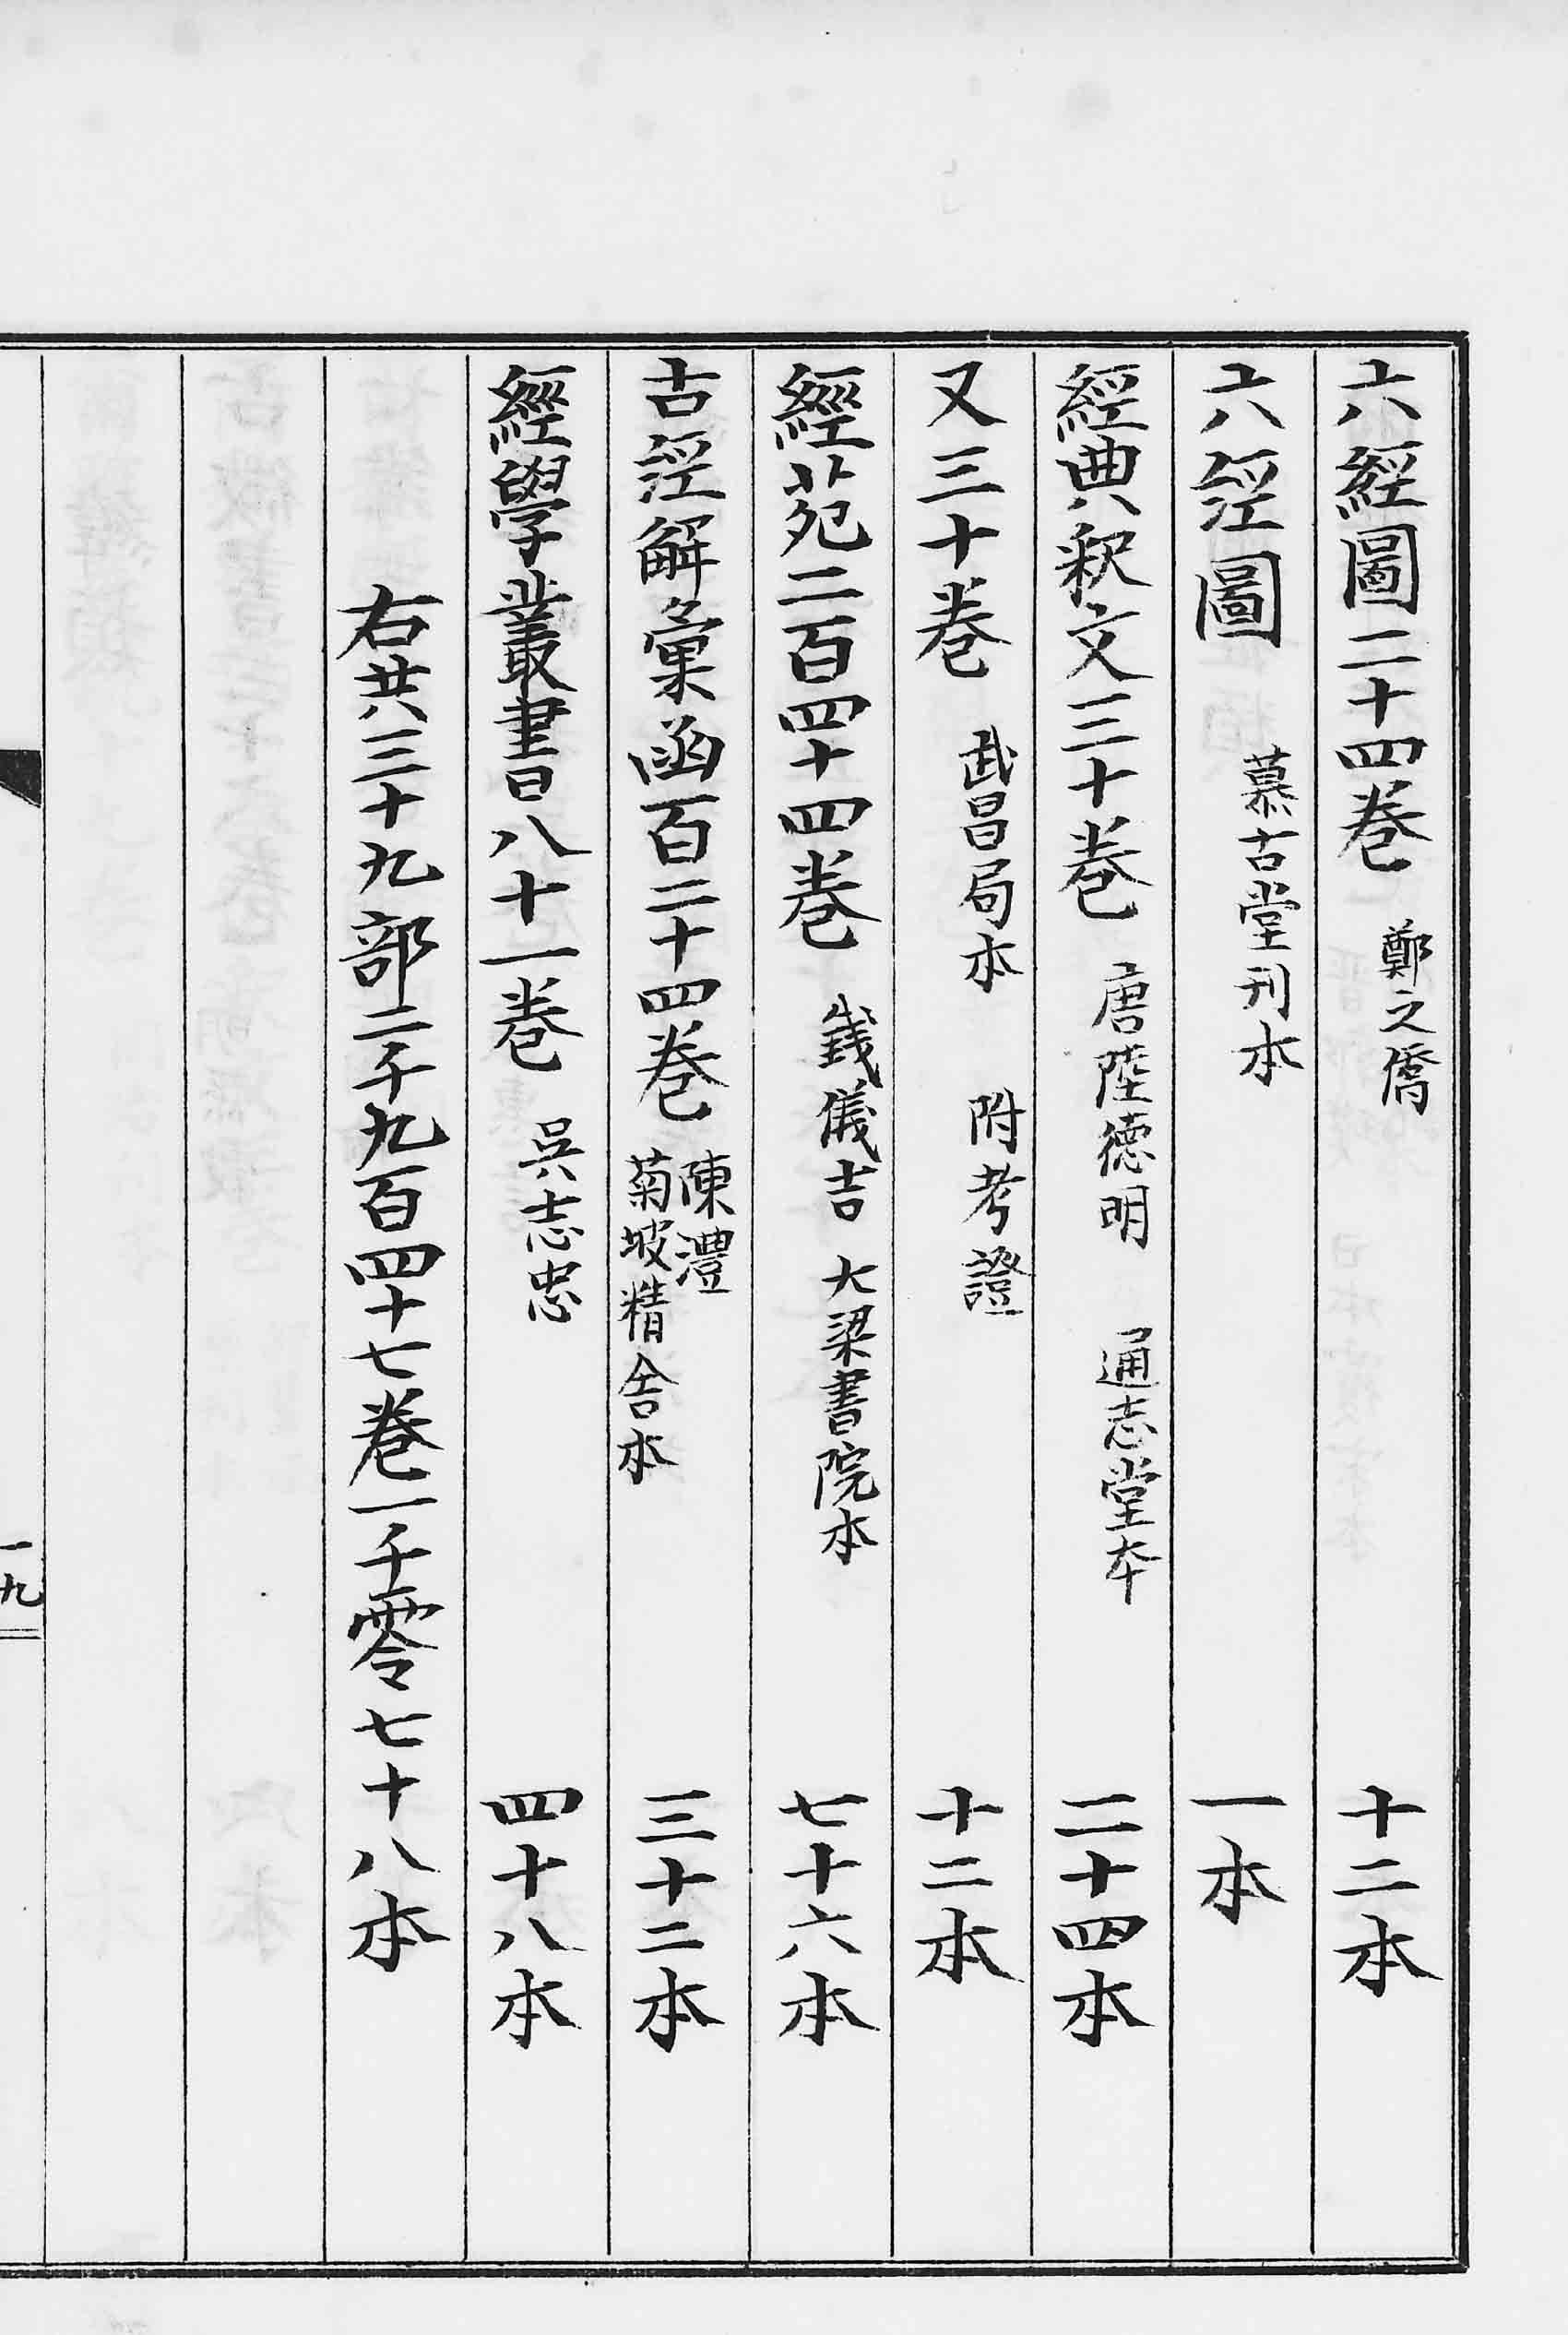 六經圖二十四卷 鄭之僑 十二本
六經圖 慕古堂刊本 一本
經典釈文三十卷 唐陸德明 通志堂本 二十四本
又三十卷 武昌局本 附考證 十二本
經苑二百四十四卷 錢儀吉 大梁書院本 七十六本
古經解彙函百二十四卷 陳澧 菊坡精舍本 三十二本
經學叢書八十一卷 吳志忠 四十八本
右共三十九部二千九百四十七卷一千零七十八本
一九